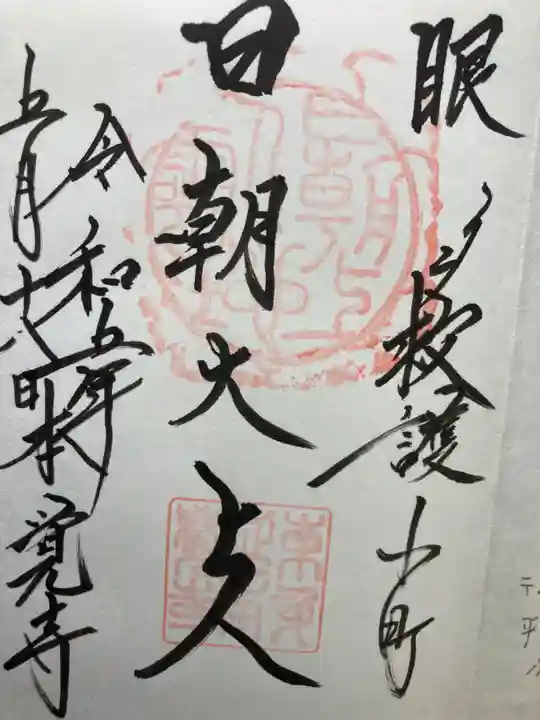 眼
救護 小町
日朝大上人
令和五年
五月十八日 本覚寺